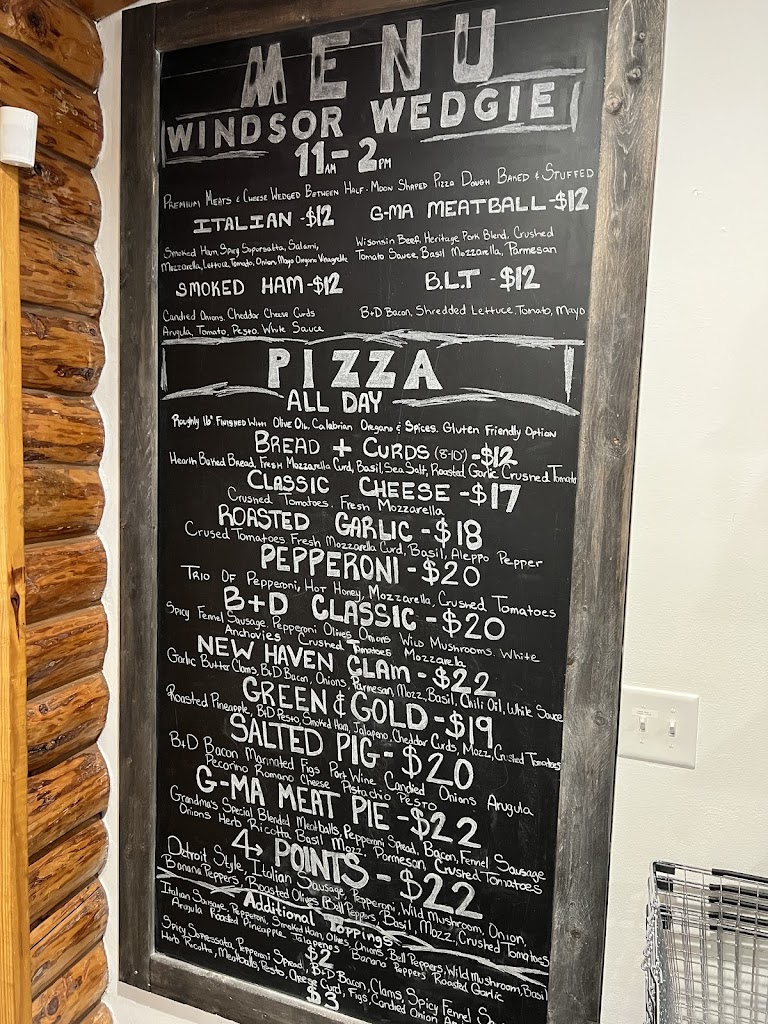 MENU
WINDSOR WEDGIE
11AM - 2PM
Premium Meats & Cheese Wedged Between Half-Moon Shaped Pizza Dough Baked & Stuffed
ITALIAN - $12
Smoked Ham, Spicy Sopersatta, Salami,
Mozzarella, Lettuce, Tomato, Onion, Mayo Oregano Vinagrette
G-MA MEATBALL - $12
Wisonsin Beef, Heritage Pork Blend, Crushed
Tomato Sauce, Basil Mozzarella, Parmesan
SMOKED HAM - $12
Candied Onions, Cheddar Cheese Curds
Arugula, Tomato, Pesto, White Sauce
B.L.T - $12
B+D Bacon, Shredded Lettuce, Tomato, Mayo
PIZZA
ALL DAY
Roughly 16". Finished With Olive Oil, Calabrian Oregano & Spices. Gluten Friendly Option
BREAD + CURDS (8-10") - $12
Hearth Baked Bread, Fresh Mozzarella Curd, Basil, Sea Salt, Roasted Garlic Crushed Tomato
CLASSIC CHEESE - $17
Crushed Tomatoes, Fresh Mozzarella
ROASTED GARLIC - $18
Crused Tomatoes Fresh Mozzarella Curd, Basil, Aleppo Pepper
PEPPERONI - $20
Trio Of Pepperoni, Hot Honey, Mozzarella, Crushed Tomatoes
B+D CLASSIC - $20
Spicy Fennel Sausage, Pepperoni Olives Onions Wild Mushrooms. White
Anchovies Crushed Tomatoes Mozzarela
NEW HAVEN CLAM - $22
Garlic Butter Clams, B+D Bacon, Onions, Parmesan, Mozz, Basil, Chili Oil, White Sauce
GREEN & GOLD - $19
Roasted Pineapple, B+D Pesto, Smoked Ham, Jalapeno, Cheddar Curds, Mozz, Crushed Tomatoes
SALTED PIG - $20
B+D Bacon Marinated Figs Port Wine Candied Onions Arugula
Pecorino Romano Cheese Pistachio Pesto
G-MA MEAT PIE - $22
Grandma's Special Blended Meatballs, Pepperoni Spread, Bacon, Fennel Sausage
Onions Herb Ricotta Basil Mozz Parmesan Crushed Tomatoes
4 POINTS - $22
Detroit Style, Italian Sausage, Pepperoni, Wild Mushroom, Onion,
Banana Peppers, Roasted Olives Bell Peppers, Basil, Mozz, Crushed Tomatoes
Additional Toppings
Italian Sausage, Pepperoni, Smoked Ham, Olives, Onions, Bell Peppers, Wild Mushroom, Basil
Arugula Roasted Pineapple Jalapenos Banana Peppers Roasted Garlic
$2
Spicy Sopressata, Pepperoni Spread, B+D Bacon, Clams, Spicy Fennel
Herb Ricotta, Meatballs, Pesto, Cheese Curd, Figs, Candied Onion
$3